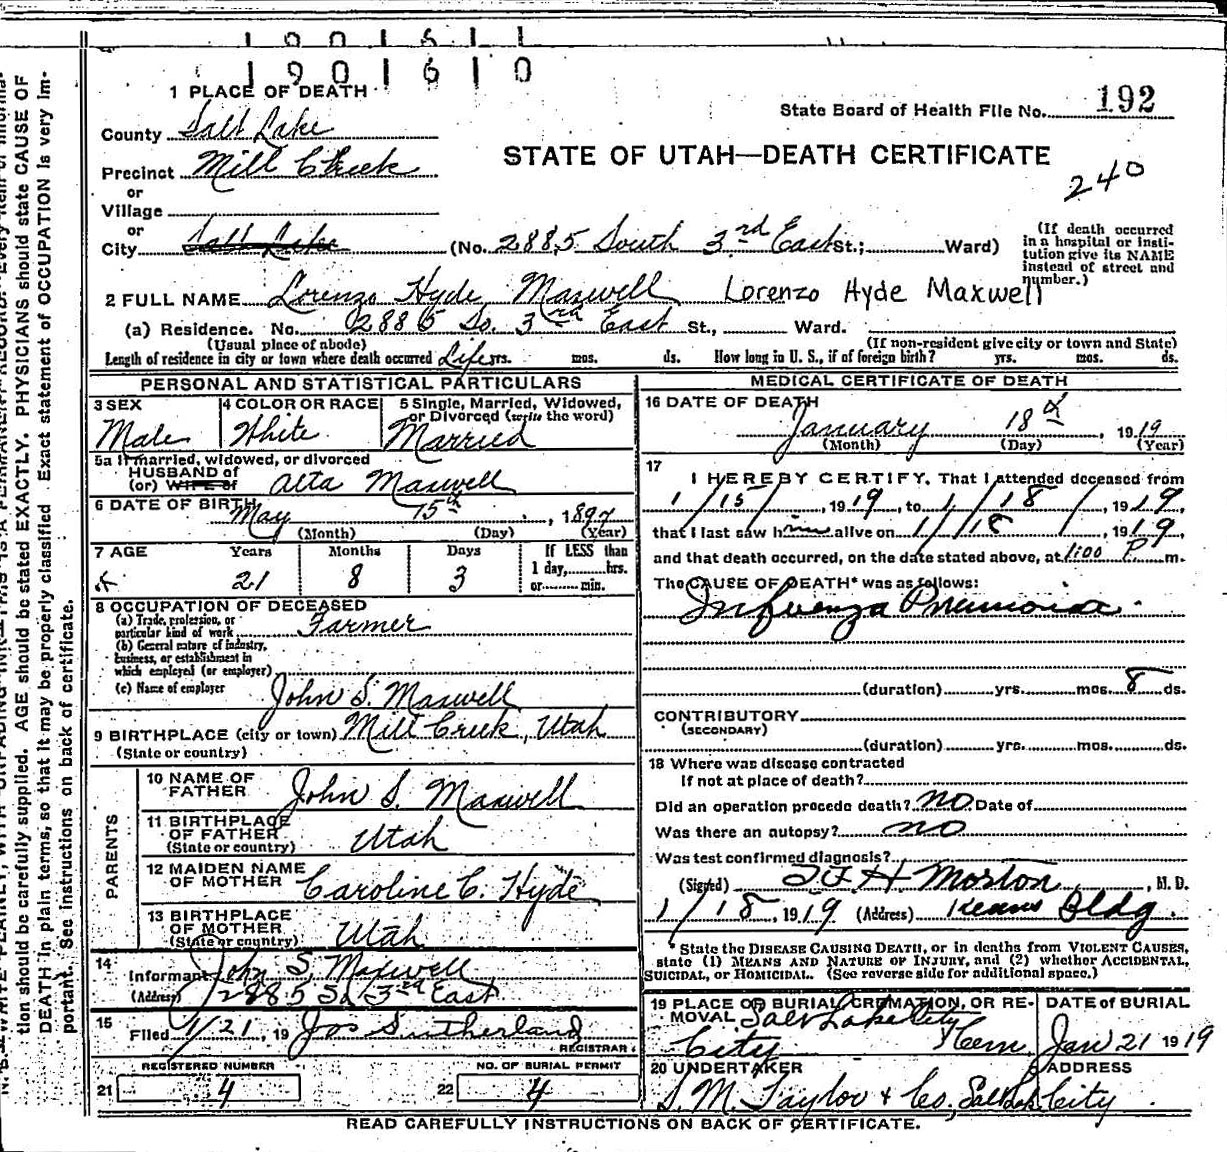 1901611
1901610
1 PLACE OF DEATH
State Board of Health File No. 192
County Salt Lake
STATE OF UTAH—DEATH CERTIFICATE
240
Precinct Mill Creek
or
Village
or
City Salt Lake (No. 2885 South 3rd East St.; Ward)
(If death occurred in a hospital or institution give its NAME instead of street and number.)
2 FULL NAME Lorenzo Hyde Maxwell Lorenzo Hyde Maxwell
(a) Residence. No. 2885 So. 3rd East St., Ward.
(Usual place of abode) (If non-resident give city or town and State)
Length of residence in city or town where death occurred Life yrs. mos. ds. How long in U. S., if of foreign birth? yrs. mos. ds.
PERSONAL AND STATISTICAL PARTICULARS
3 SEX Male
4 COLOR OR RACE White
5 Single, Married, Widowed, or Divorced (write the word) Married
5a If married, widowed, or divorced
HUSBAND of
(or) WIFE of Alta Maxwell
6 DATE OF BIRTH May 15th, 1897
(Month) (Day) (Year)
7 AGE Years Months Days If LESS than
21 8 3 1 day, hrs.
or min.
8 OCCUPATION OF DECEASED
(a) Trade, profession, or particular kind of work Farmer
(b) General nature of industry, business, or establishment in which employed (or employer)
(c) Name of employer John S. Maxwell
9 BIRTHPLACE (city or town) Mill Creek, Utah
(State or country)
PARENTS
10 NAME OF FATHER John S. Maxwell
11 BIRTHPLACE OF FATHER (State or country) Utah
12 MAIDEN NAME OF MOTHER Caroline C. Hyde
13 BIRTHPLACE OF MOTHER (State or country) Utah
14 Informant John S. Maxwell
(Address) 2885 So 3rd East
15 Filed 1/21, 19 Jos Sutherland
REGISTRAR
REGISTERED NUMBER NO. OF BURIAL PERMIT
21 4 22 4
MEDICAL CERTIFICATE OF DEATH
16 DATE OF DEATH
January 18th, 1919
(Month) (Day) (Year)
17 I HEREBY CERTIFY, That I attended deceased from
1/15/, 1919, to 1/18/, 1919,
that I last saw him alive on 1/18/, 1919,
and that death occurred, on the date stated above, at 1:00 P. m.
The CAUSE OF DEATH* was as follows:
Influenza Pneumonia.
(duration) yrs. mos. 8 ds.
CONTRIBUTORY
(SECONDARY)
(duration) yrs. mos. ds.
18 Where was disease contracted
if not at place of death?
Did an operation precede death? no Date of
Was there an autopsy? no
Was test confirmed diagnosis?
(Signed) Morton, M. D.
1/18, 1919 (Address) Kearns Bldg.
*State the DISEASE CAUSING DEATH, or in deaths from VIOLENT CAUSES,
state (1) MEANS AND NATURE OF INJURY, and (2) whether ACCIDENTAL,
SUICIDAL, or HOMICIDAL. (See reverse side for additional space.)
19 PLACE OF BURIAL, CREMATION, OR REMOVAL Salt Lake City
City Cem.
DATE of BURIAL
Jan 21 1919
20 UNDERTAKER ADDRESS
S. M. Taylor & Co, Salt Lake City
READ CAREFULLY INSTRUCTIONS ON BACK OF CERTIFICATE.
tion should be carefully supplied. AGE should be stated EXACTLY. PHYSICIANS should state CAUSE OF
DEATH in plain terms, so that it may be properly classified. Exact statement of OCCUPATION is very im-
portant. See instructions on back of certificate.